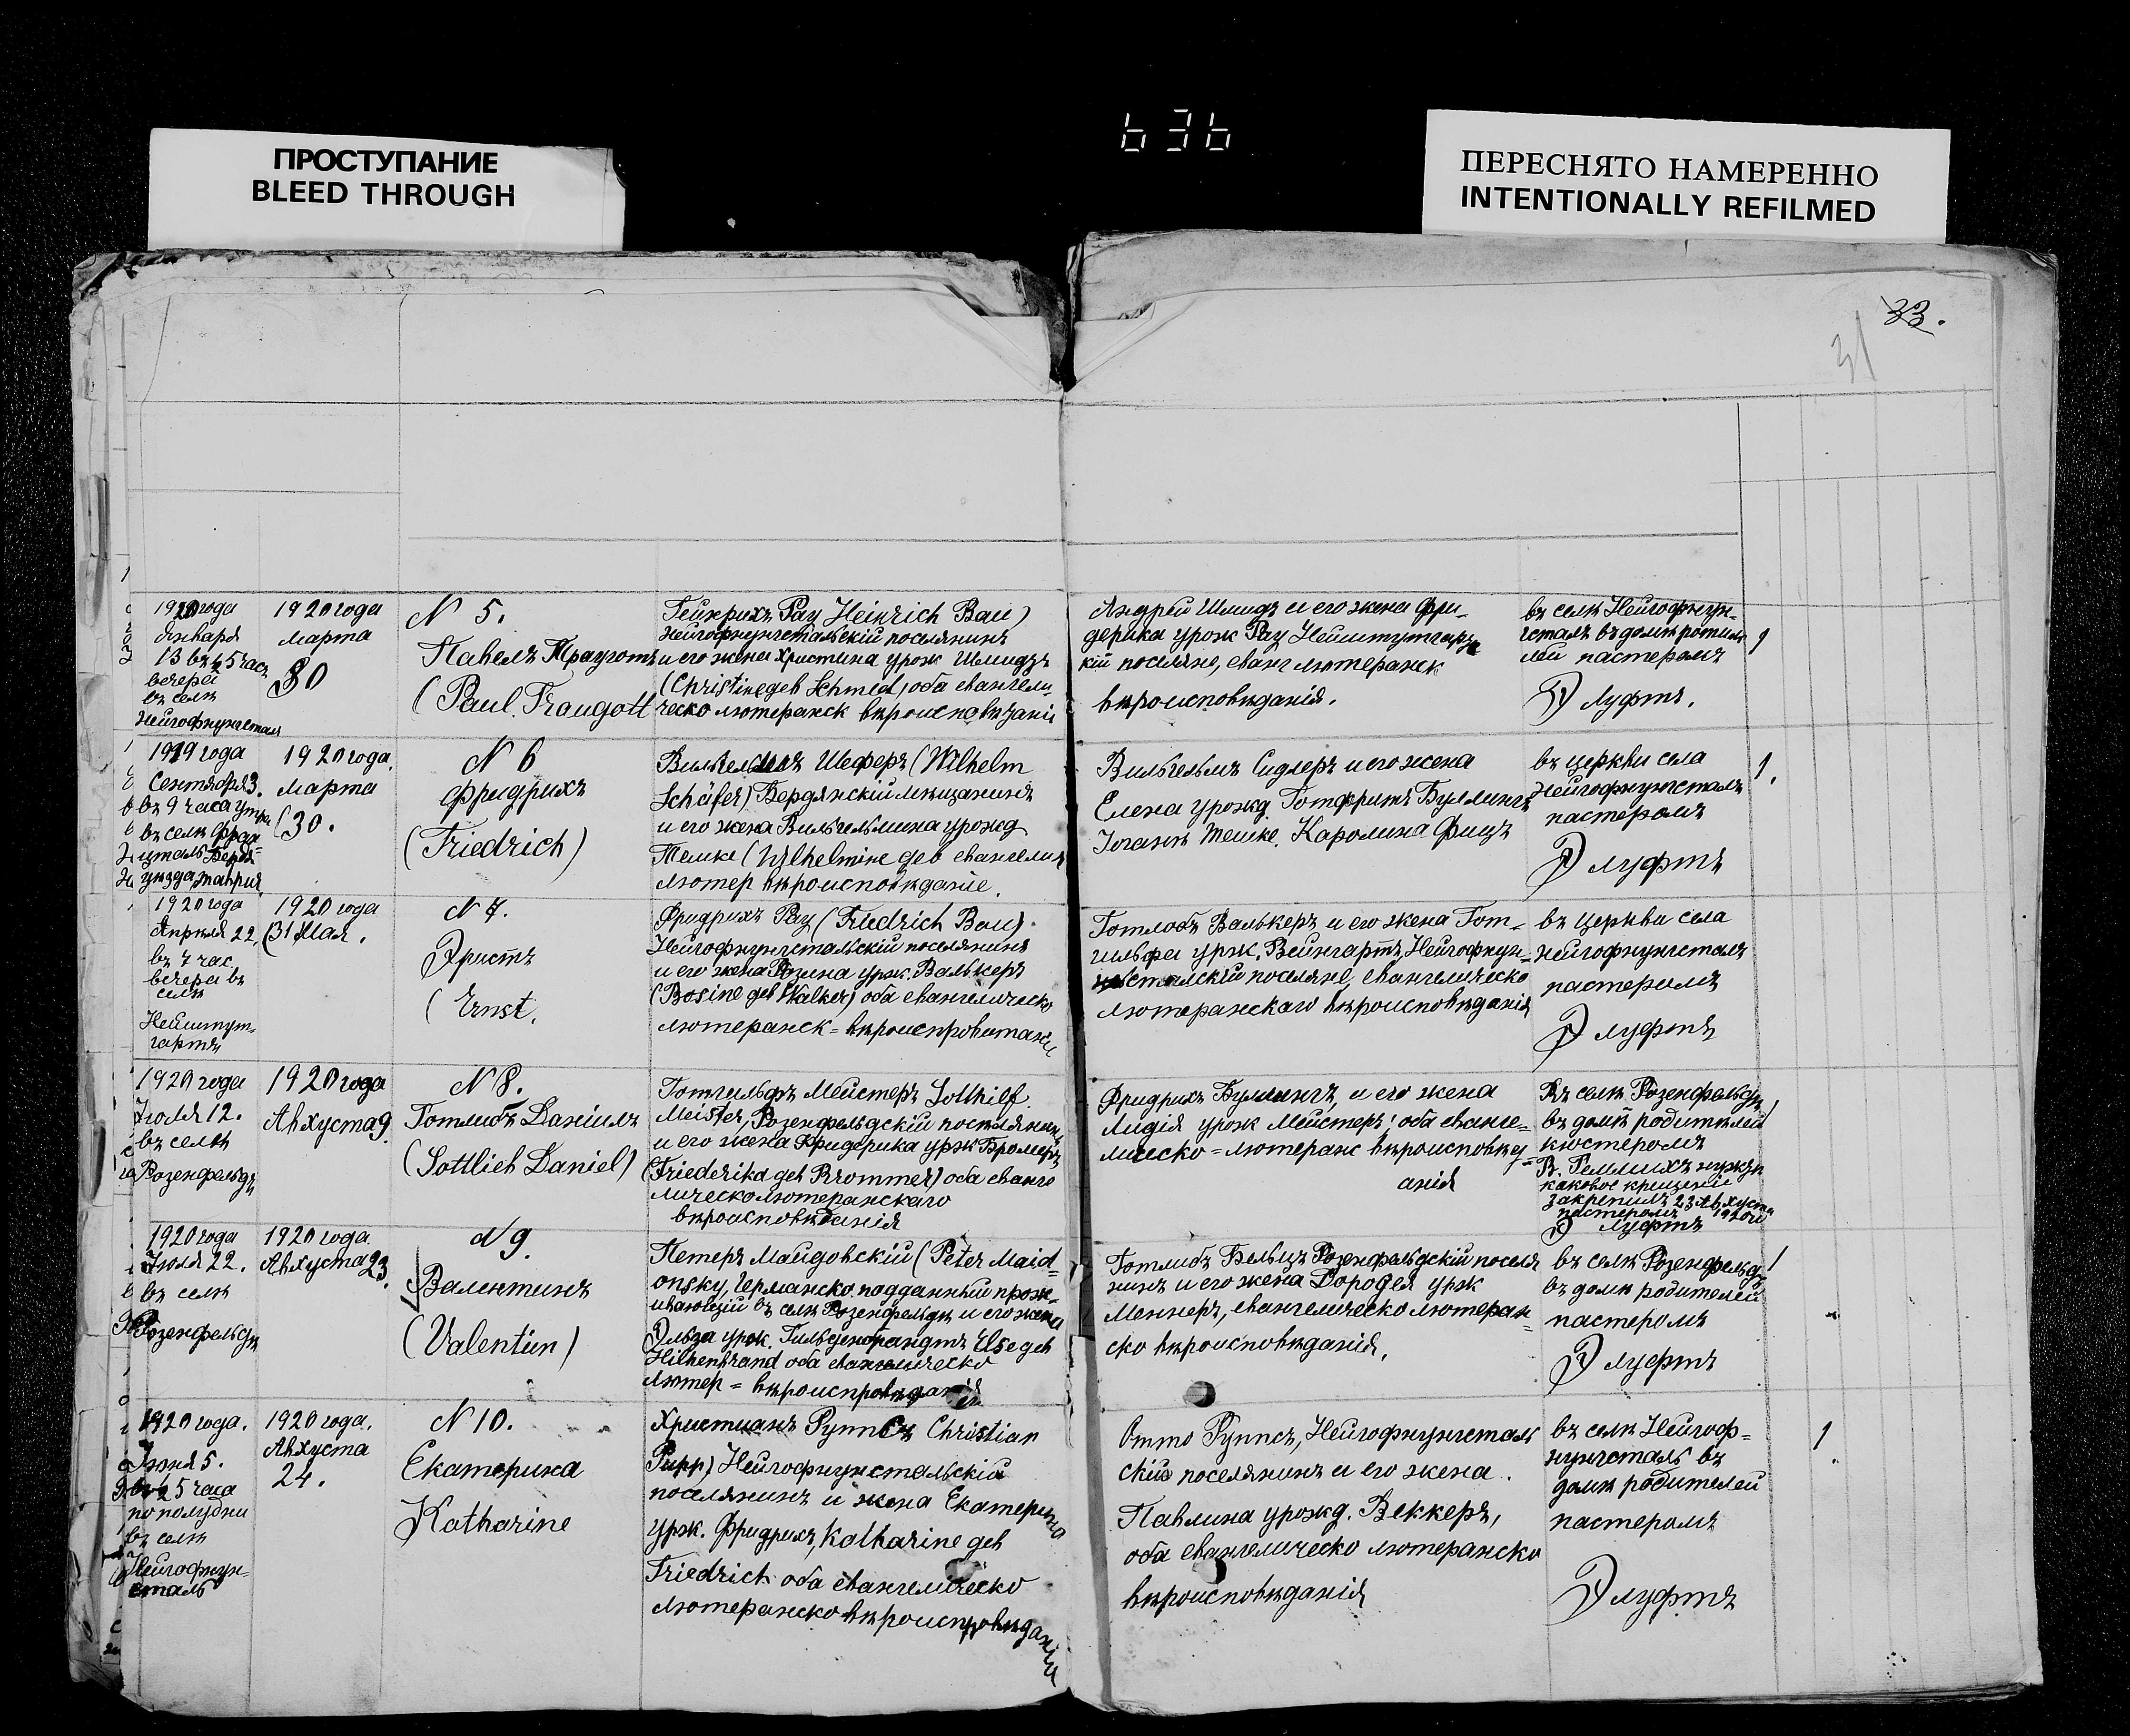 636
ПРОСТУПАНИЕ
BLEED THROUGH
ПЕРЕСНЯТО НАМЕРЕННО
INTENTIONALLY REFILMED
33.
31
1920 года
Января
13 въ 5 час
вечера
въ селѣ
Нейгофнунгсталѣ
1920 года
марта
30
N 5.
Павелъ Трауготъ
(Paul Traugott
Гейнрихъ Рау Heinrich Rau)
Нейгофнунгстальскій поселянинъ
и его жена Христина урож Шмидтъ
(Christine geb Schmid, оба евангели-
ческо лютеранск вѣроисповѣданіе
Андрей Шмидъ и его жена Фри-
дерика урож Рау Нейштутгартс
кій поселяне, еванг лютеранск
вѣроисповѣданія.
въ селѣ Нейгофнун-
гсталѣ въ домѣ родите
лей пастеромъ
Э Луфтъ.
1
1919 года
Сентября 3.
въ 9 часа утра
въ селѣ
уѣзда, Таврич
1920 года.
марта
(30.
N 6
Фридрихъ
(Friedrich)
Вильгельмъ Шеферъ (Wilhelm
Schäfer) Бердянскій мѣщанинъ
и его жена Вильгельмина урожд
Темке (Wilhelmine geb евангелич
лютер вѣроисповѣданіе.
Вильгельмъ Сидлеръ и его жена
Елена урожд. Готфритъ Буллингъ
Іоганъ Темке, Каролина Фицъ
въ церкви села
Нейгофнунгсталъ
пастеромъ
Э Луфтъ
1.
1920 года
Апрѣля 22,
въ 7 час
вечера въ
селѣ
Нейштут-
гартъ
1920 года
(31 Мая.
N 7.
Эрнстъ
(Ernst.
Фридрихъ Рау (Friedrich Rau).
Нейгофнунгстальскій поселянинъ
и его жена Розина урж. Валькеръ
(Rosine geb Walker) оба евангелическо
лютеранск-вѣроисповѣтаніе
Готлобъ Валькеръ и его жена Гот-
гильфа урж. Вейнгартъ, Нейгофнунг-
стальскій поселяне, евангелическо
лютеранскаго вѣроисповѣданія
въ церкви села
Нейгофнунгсталъ
пастеромъ
Э Луфтъ
1920 года
Іюля 12.
въ селѣ
Розенфельдъ
1920 года
Августа 9.
N 8.
Готлибъ Даніилъ
(Gottlieb Daniel)
Готгильфъ Мейстеръ Gotthilf
Meister, Розенфельдскій поселянинъ
и его жена Фридерика урж Бромеръ
(Friederika geb Brommer) оба еванге
лическо лютеранскаго
вѣроисповѣданія
Фридрихъ Буллингъ, и его жена
Лидія урож Мейстеръ; оба еванге-
лическо=лютеранс вѣроисповѣд=
анія
Въ селѣ Розенфельдъ
въ домѣ родителей
кюстеромъ
каковое крещеніе
закрепилъ 23 Августа
пастеромъ 1920 г
Э Луфтъ
1
1920 года
Іюля 22.
въ селѣ
Розенфельдъ
1920 года
Августа 23.
N 9.
Валентинъ
(Valentin)
Петеръ Майдовскій (Peter Maid=
onsky, Германско подданный прож-
ивающій въ селѣ Розенфельдѣ и его жена
Эльза урж. Гильденбрандтъ Else geb
Hilhenbrand оба евангелическо
лютер=вѣроисповѣданія
Готлибъ Бельцъ Розенфельдскій поселя
нинъ и его жена Дородея урж
Меннеръ, евангелическо лютеран=
ско вѣроисповѣданія.
въ селѣ Розенфельдъ
въ домѣ родителей
пастеромъ
Э Луфтъ
1
1920 года.
Іюня 5.
въ 5 часа
по полудни
въ селѣ
Нейгофнун
сталь
1920 года.
Августа
24.
N 10.
Екатерина
Katharine
Христианъ Руппъ Christian
Rupp) Нейгофнунстальскій
поселянинъ и жена Екатерина
урж. Фридрихъ, Katharine geb
Friedrich оба евангелическо
лютеранско вѣроисповѣданія
Отто Руппъ, Нейгофнунгсталь
скій поселянинъ и его жена
Павлина урожд. Веккеръ,
оба евангелическо лютеранско
вѣроисповѣданія
въ селѣ Нейгоф=
нунгсталь въ
домѣ родителей
пастеромъ
Э Луфтъ
1